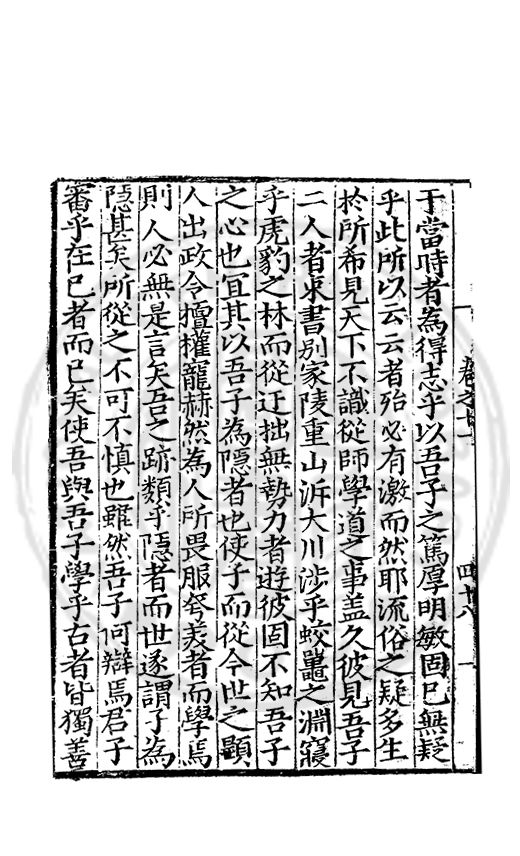 于當時者為得志乎以吾子之篤厚明敏固已無疑
乎此所以云云者殆必有激而然耶流俗之疑多生
於所希見天下不識從師學道之事盖久彼見吾子
二人者束書别家陵重山泝大川涉乎蛟鼉之淵寢
乎虎豹之林而從迂拙無勢力者遊彼固不知吾子
之心也宜其以吾子為隠者也使子而從今世之顯
人出政令擅權寵赫然為人所畏服夸羙者而學焉
則人必無是言矣吾之跡類乎隠者而世遂謂子為
隠甚矣所從之不可不慎也雖然吾子何辯焉君子
審乎在已者而已矣使吾與吾子學乎古者皆獨善